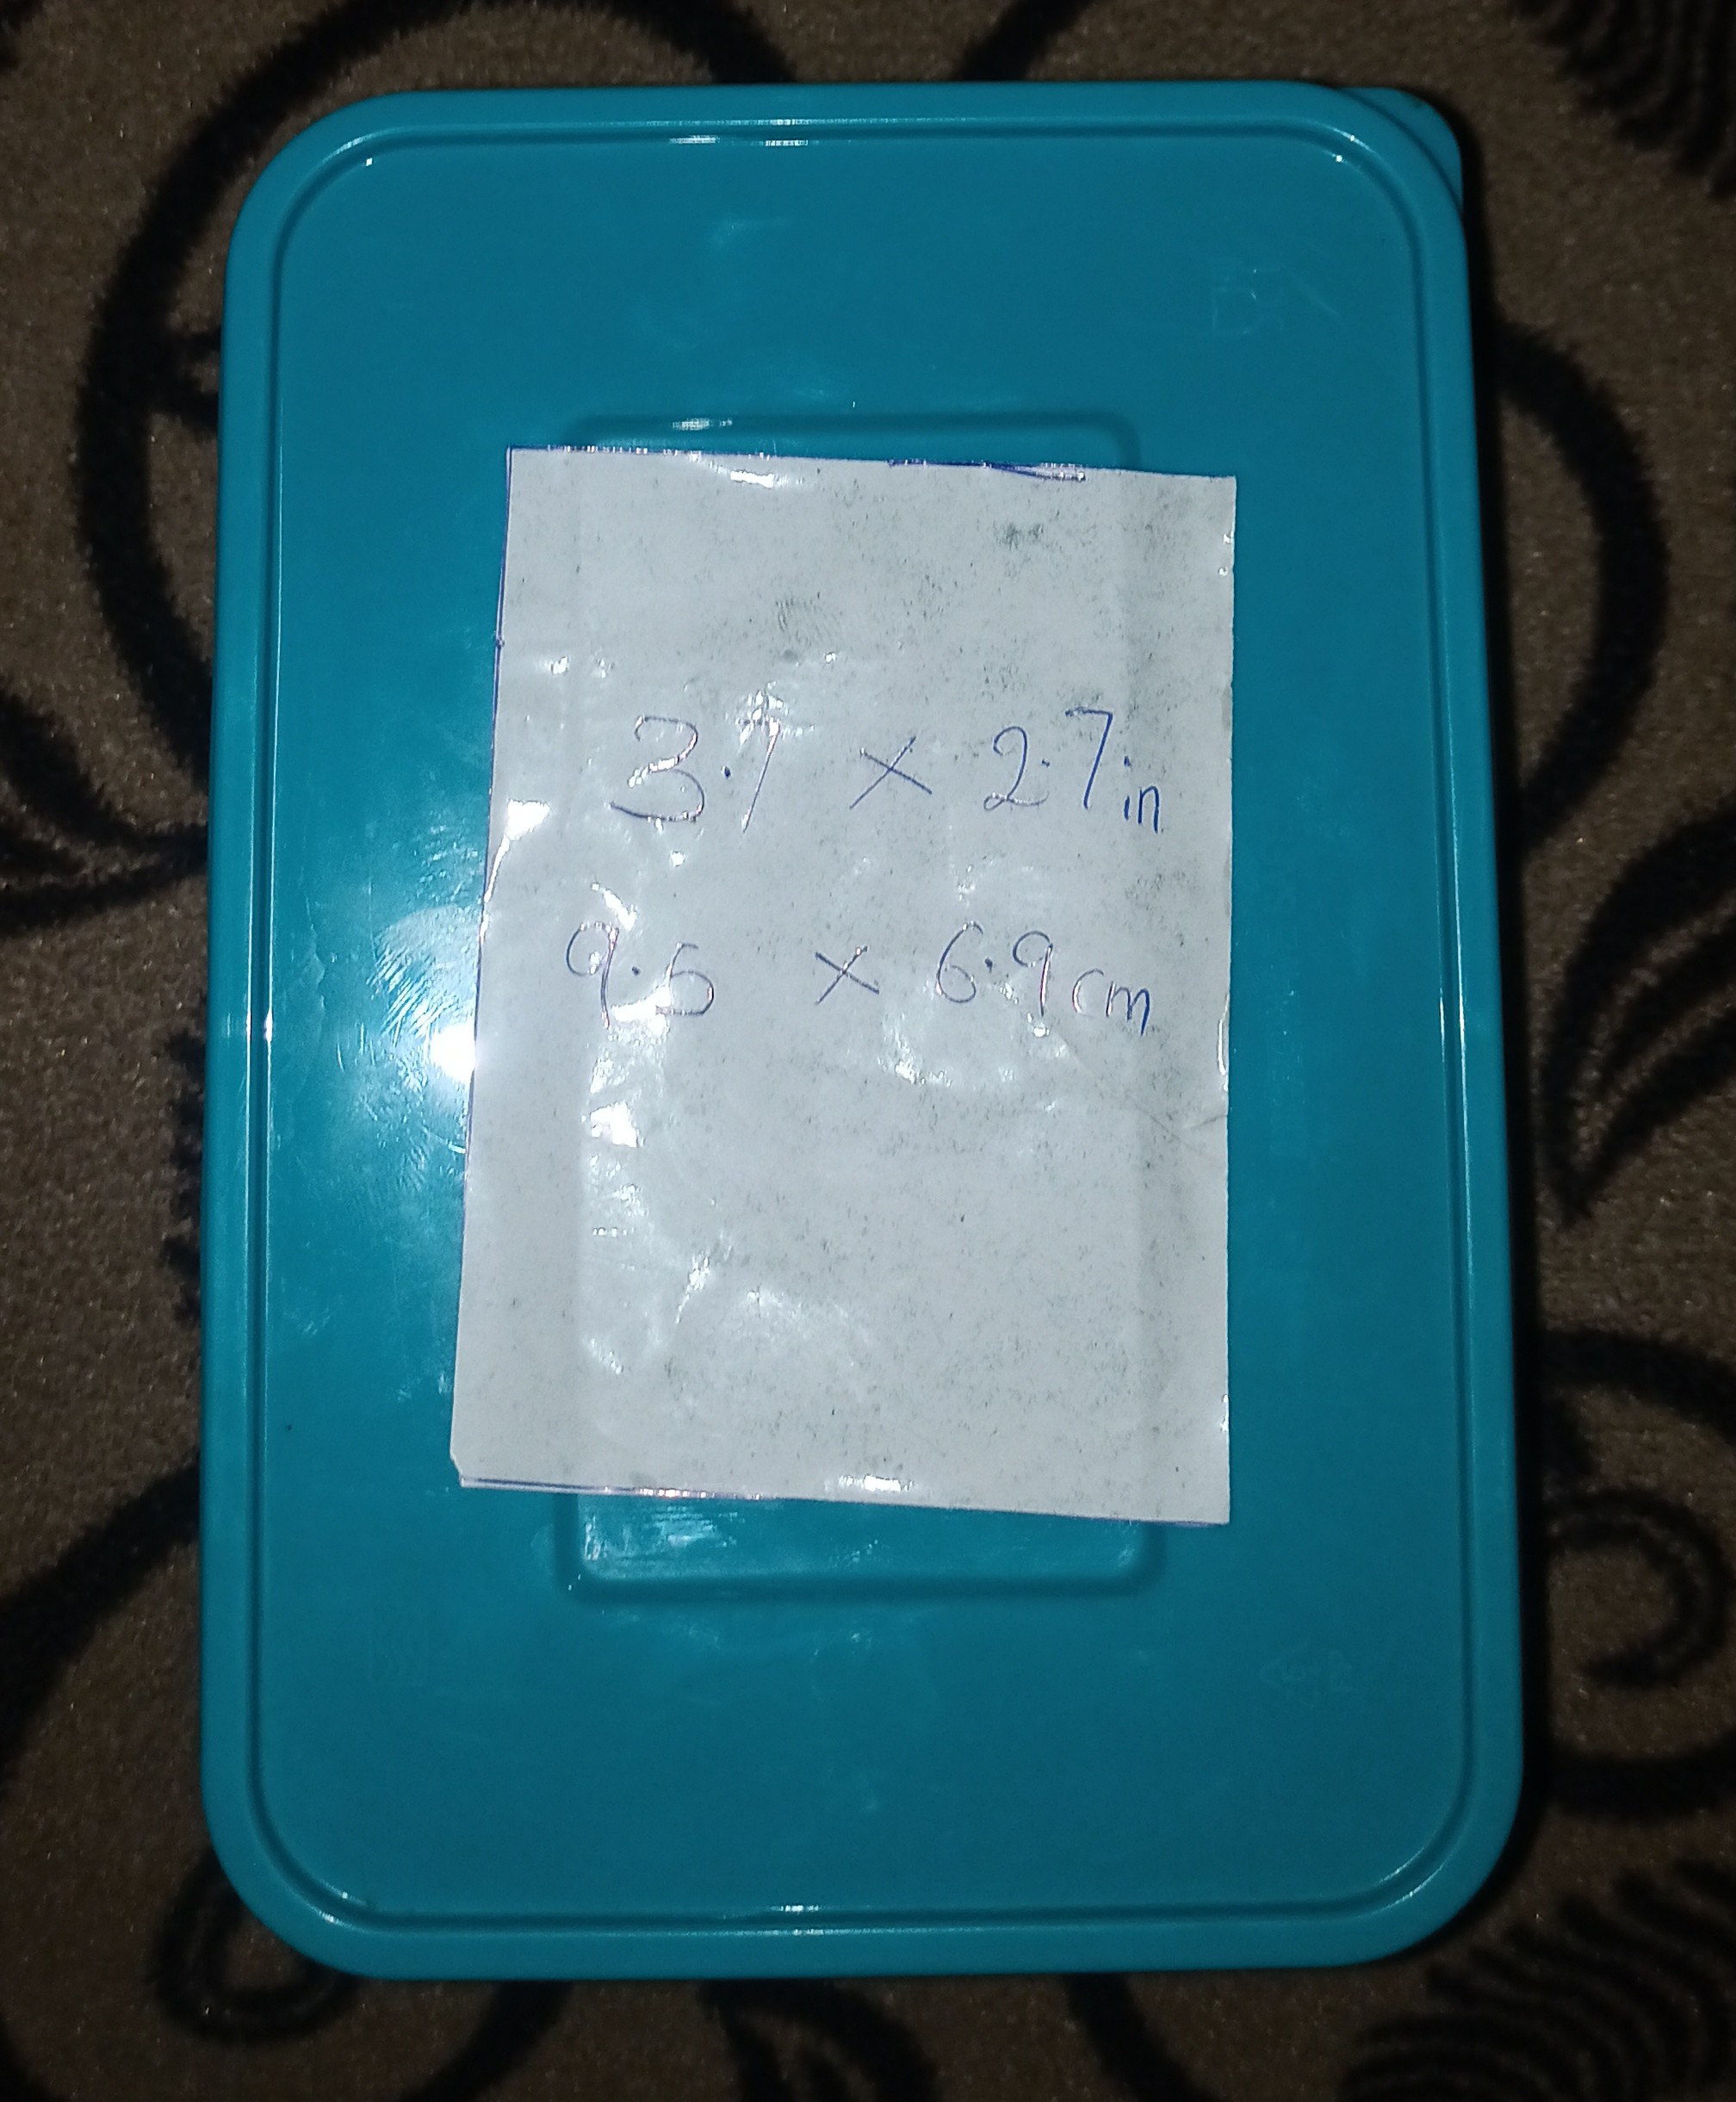 3.7 × 2.7in
9.5 × 6.9cm